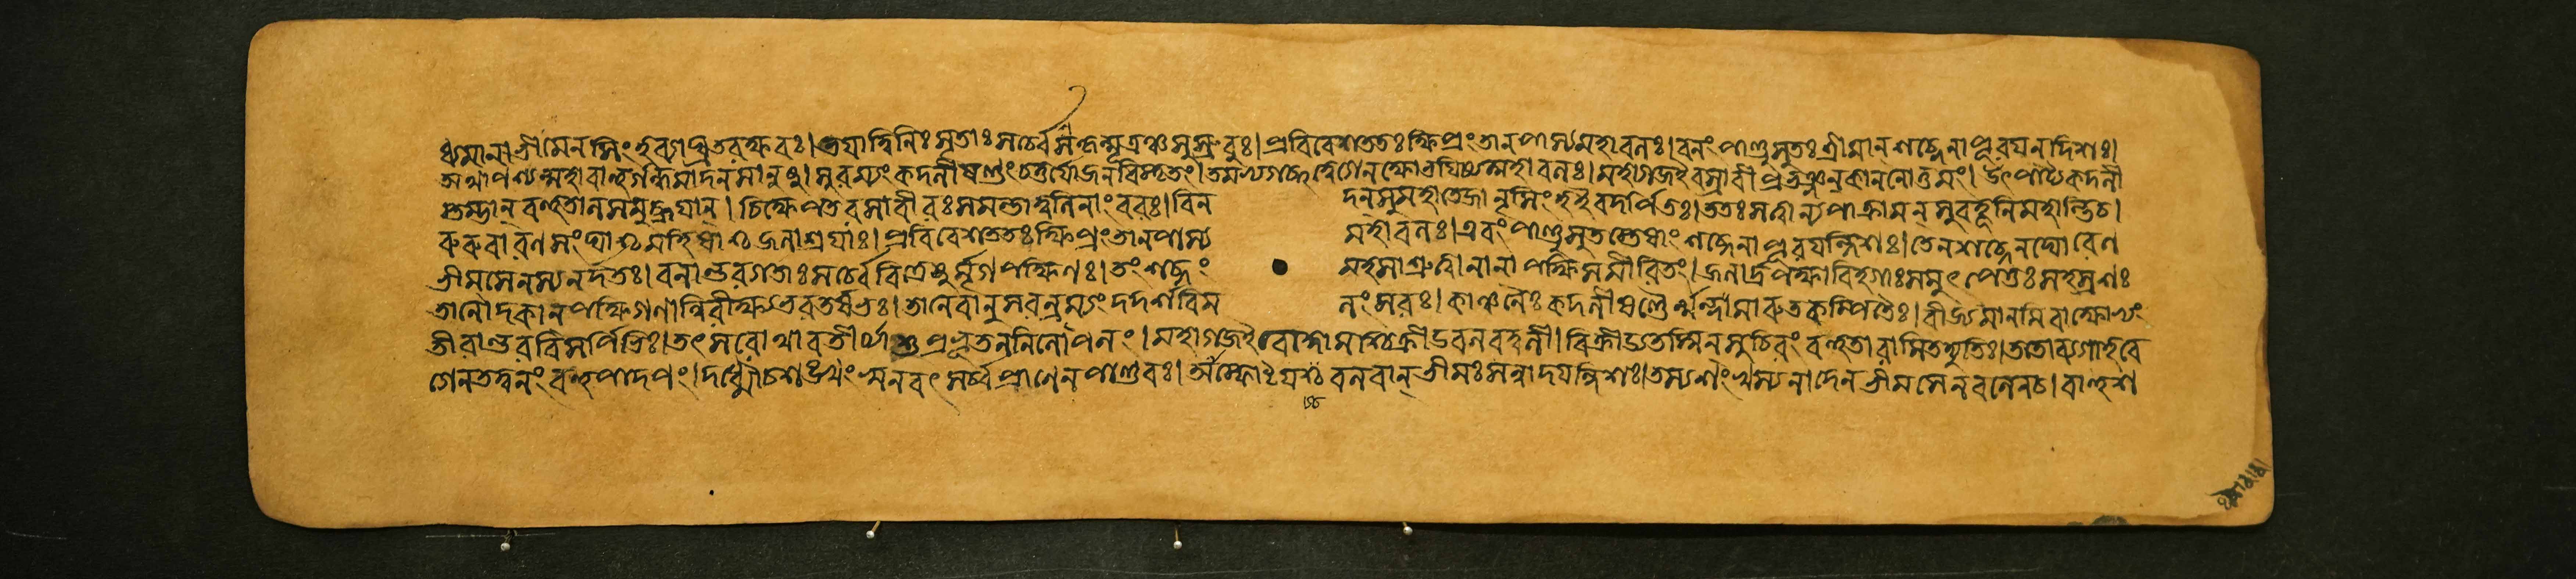 ধ্যমানা ভীমেন সিংহব্যাঘ্রতরক্ষবঃ। ভয়াদ্বিনিঃসৃতাঃ সর্ব্বে সকৃন্মূত্রঞ্চ সুস্রুবুঃ। প্রবিবেশ ততঃ ক্ষিপ্রং তানপাস্য মহাবলঃ। বনং পাণ্ডুসুতঃ শ্রীমান্ শব্দেনাপূরয়ন্দিশঃ।
অথাপশ্যন্মহাবাহুর্গন্ধমাদনসানুষু। সুরম্যং কদলীষণ্ডং চতুর্যোজনবিস্তৃতং। তমভ্যগচ্ছদ্বেগেন ক্ষোভয়িষ্যন্মহাবলঃ। মহাগজ ইবাস্রাবী প্রভঞ্জন্ কাননোত্তমং। উৎপাট্য কদলী
স্তম্ভান্ বহুতালসমুচ্ছ্রয়ান্। চিক্ষেপ তরসা বীরঃ সমন্তাদ্বলিনাং বরঃ। বিন দন্ সুমহাতেজা নৃসিংহ ইব দর্পিতঃ। ততঃ সত্বান্যপাক্রামন্ সুবহূনি মহান্তি চ।
রুরুবারণসংঘাশ্চ মহিষাশ্চ জলাশ্রয়াঃ। প্রবিবেশ ততঃ ক্ষিপ্রং তানপাস্য মহাবলঃ। এবং পাণ্ডুসুতস্তেষাং শব্দেনাপূরয়ন্দিশঃ। তেন শব্দেন ঘোরেণ
ভীমসেনস্য নর্দতঃ। বনান্তরগতাঃ সর্ব্বে বিত্রেসুর্মৃগপক্ষিণঃ। তং শব্দং সহসা শ্রুত্বা নানাপক্ষিসমীরিতং। জলার্দ্রপক্ষা বিহগাঃ সমুৎপেতুঃ সহস্রশঃ
তানৌদকান্ পক্ষিগণান্নিরীক্ষ্য ভরতর্ষভঃ। তানেবানুসরন্ রম্যং দদর্শ বিম লং সরঃ। কাঞ্চনৈঃ কদলীষণ্ডৈর্মন্দমারুতকম্পিতৈঃ। বীজ্যমানমিবাক্ষোভ্যং
তীরান্তরবিসর্পিতিঃ। তৎ সরোথাবতীর্যাশু প্রভূতনলিনোৎপলং। মহাগজ ইবোদ্দামশ্চিক্রীড বলবদ্বলী। বিক্রীড্য তস্মিন্ সুচিরং বহুতারামিতদ্যুতিঃ। ততোব্যগাহ বে
গেন তদ্বনং বহুপাদপং। দধ্মৌ চ শঙ্খং স্বনবৎ সর্ব্বপ্রাণেন পাণ্ডবঃ। বলবান্ ভীমঃ সন্নাদয়ন্দিশঃ। তস্য শংখস্য নাদেন ভীমসেনরবেণ চ। বাহুশ